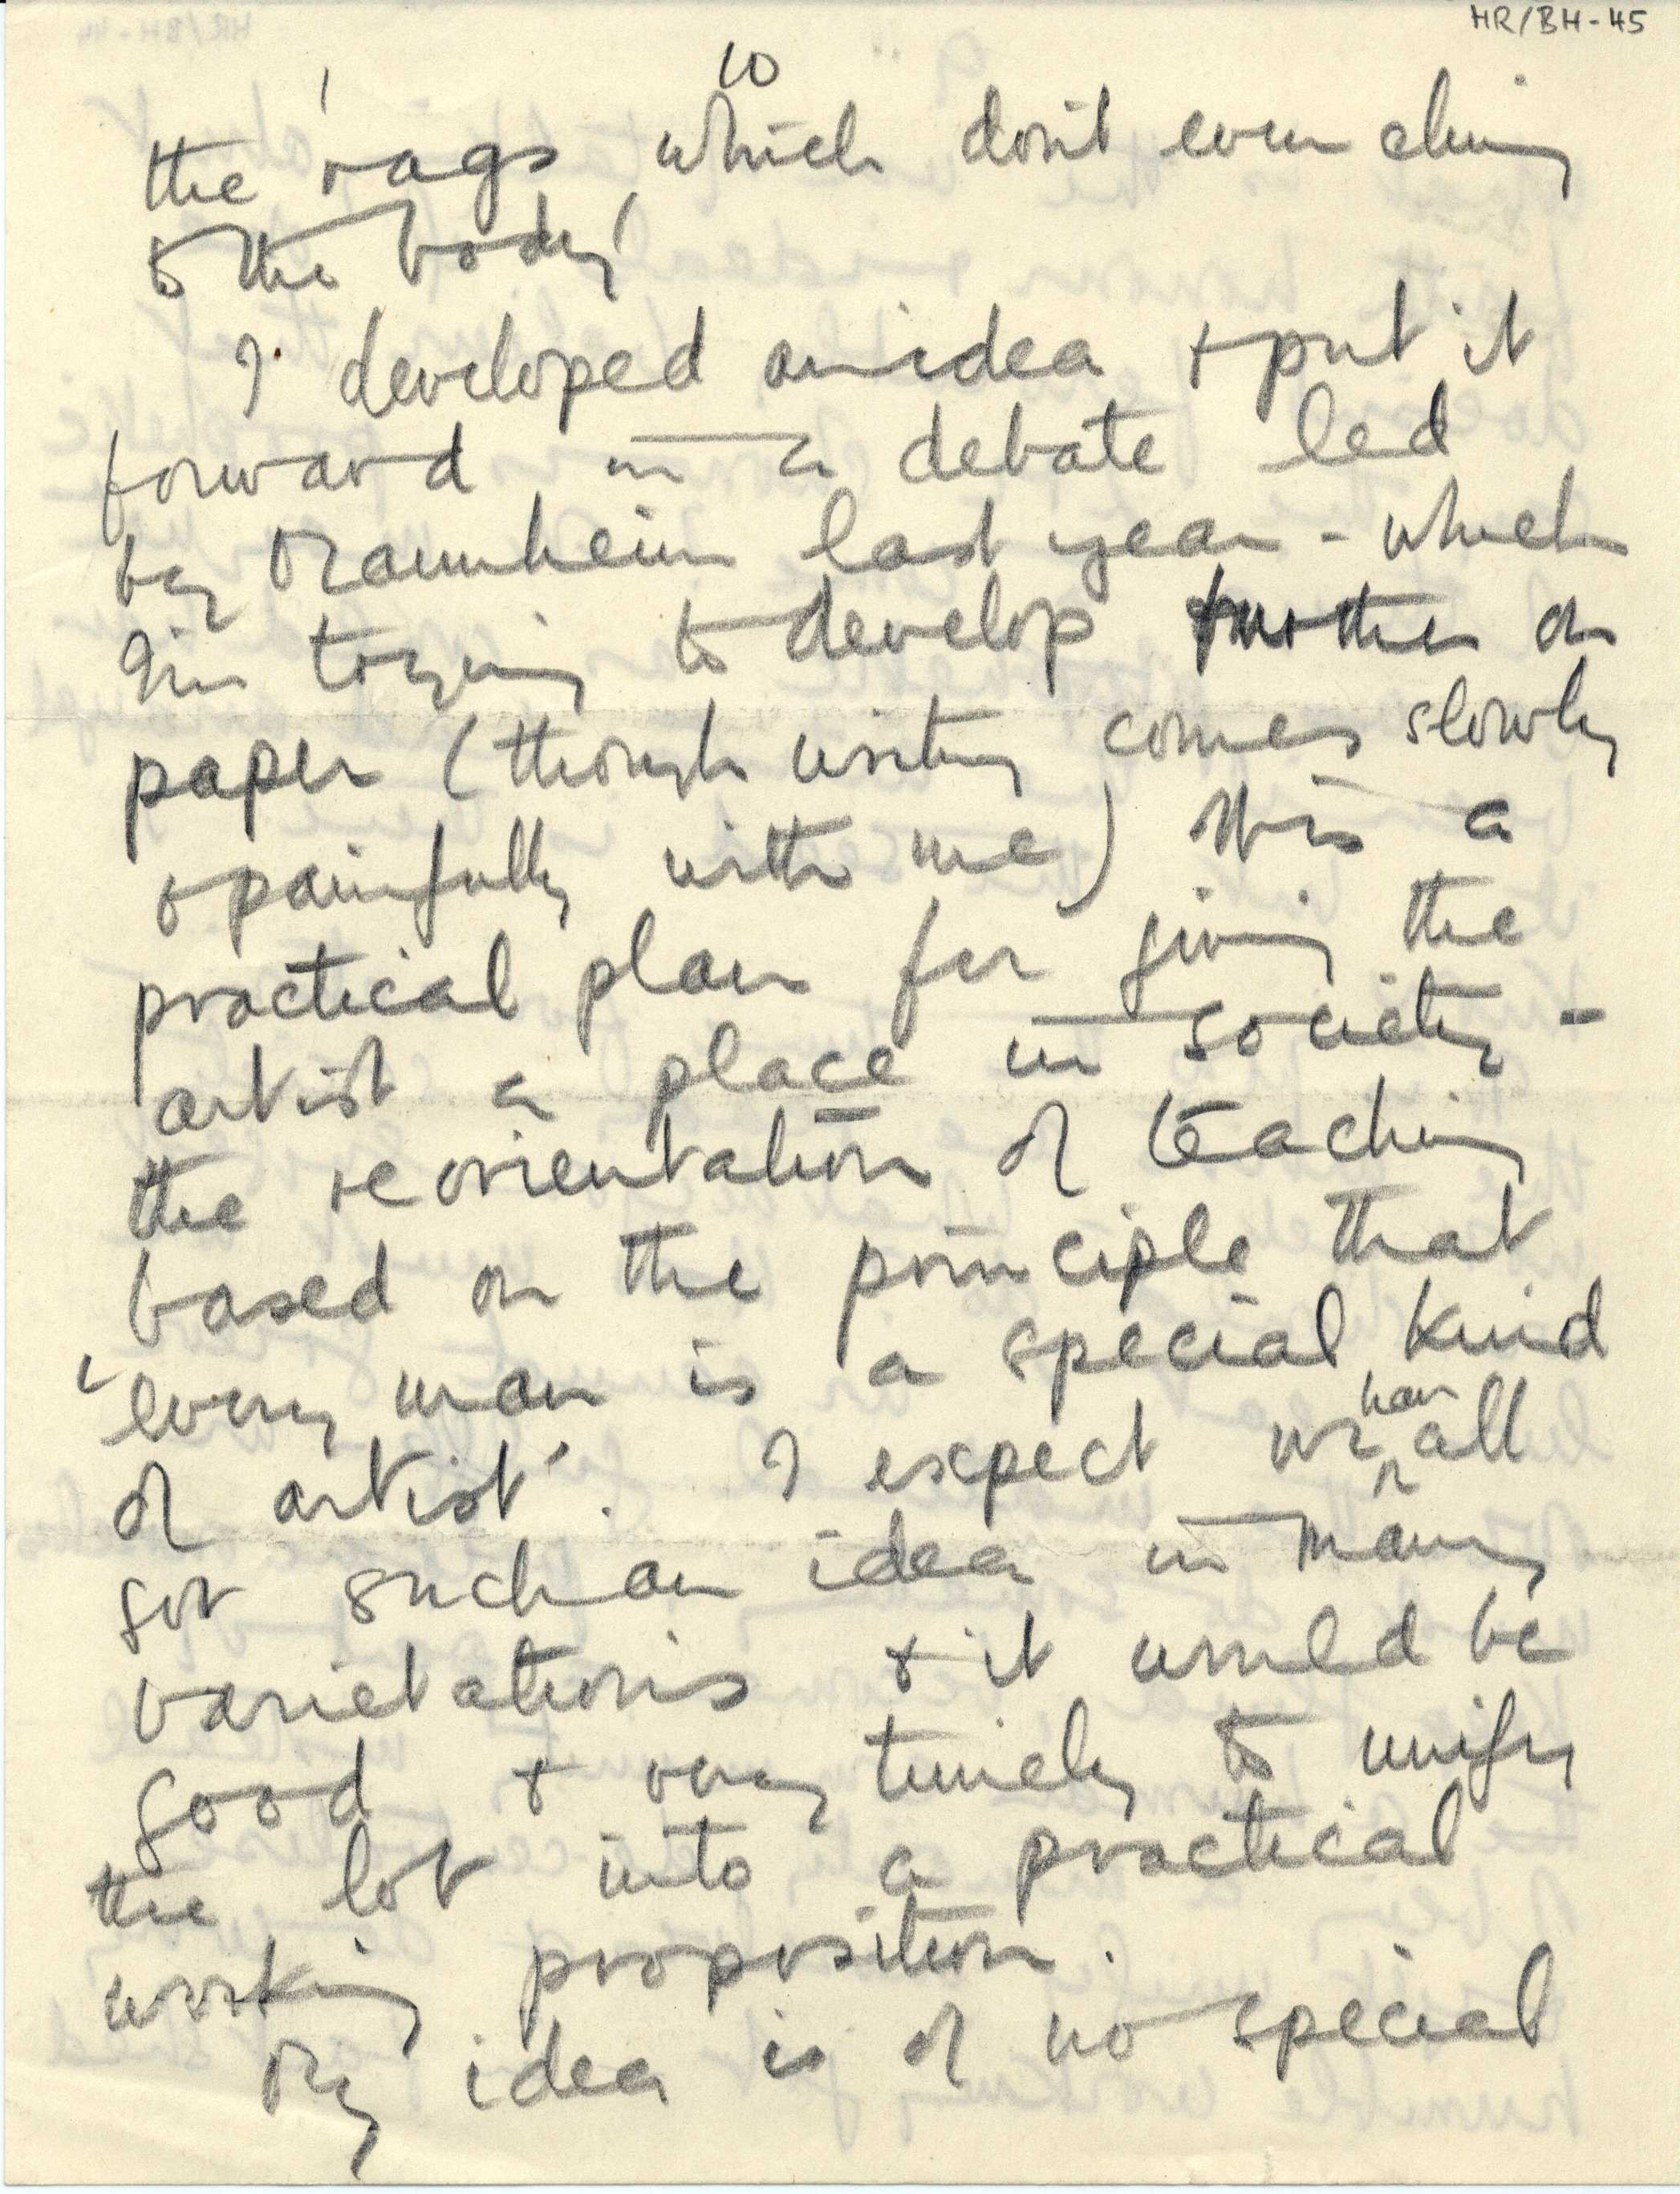 HR/BH-45
10
the 'rags which don't even cling
to the body'
I developed an idea + put it
forward in a debate led
by Mannheim last year - which
I'm trying to develop further on
paper (though writing comes slowly
+ painfully with me) It is a
practical plan for giving the
artist a place in society -
the reorientation of teaching
based on the principle that
'every man is a special kind
of artist'. I expect we have all
got such an idea in many
varietations + it would be
good + very timely to unify
the lot into a practical
working proposition.
My idea is of no special